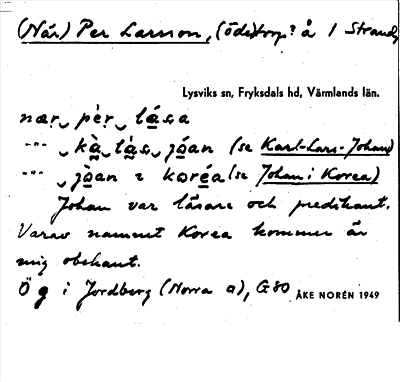 (När) Per Larsson, (öde)torp? å 1 Strand,
Lysviks sn, Fryksdals hd, Värmlands län.
nær per lása
-"- kà làs jóan (se Karl-Lars-Johan)
-"- jòan i koréa (se Johan i Korea)
Johan var läsare och predikant.
Varav namnet Korea kommer är
mig obekant.
Ög i Jordberg (Norra a), G80
ÅKE NORÉN 1949